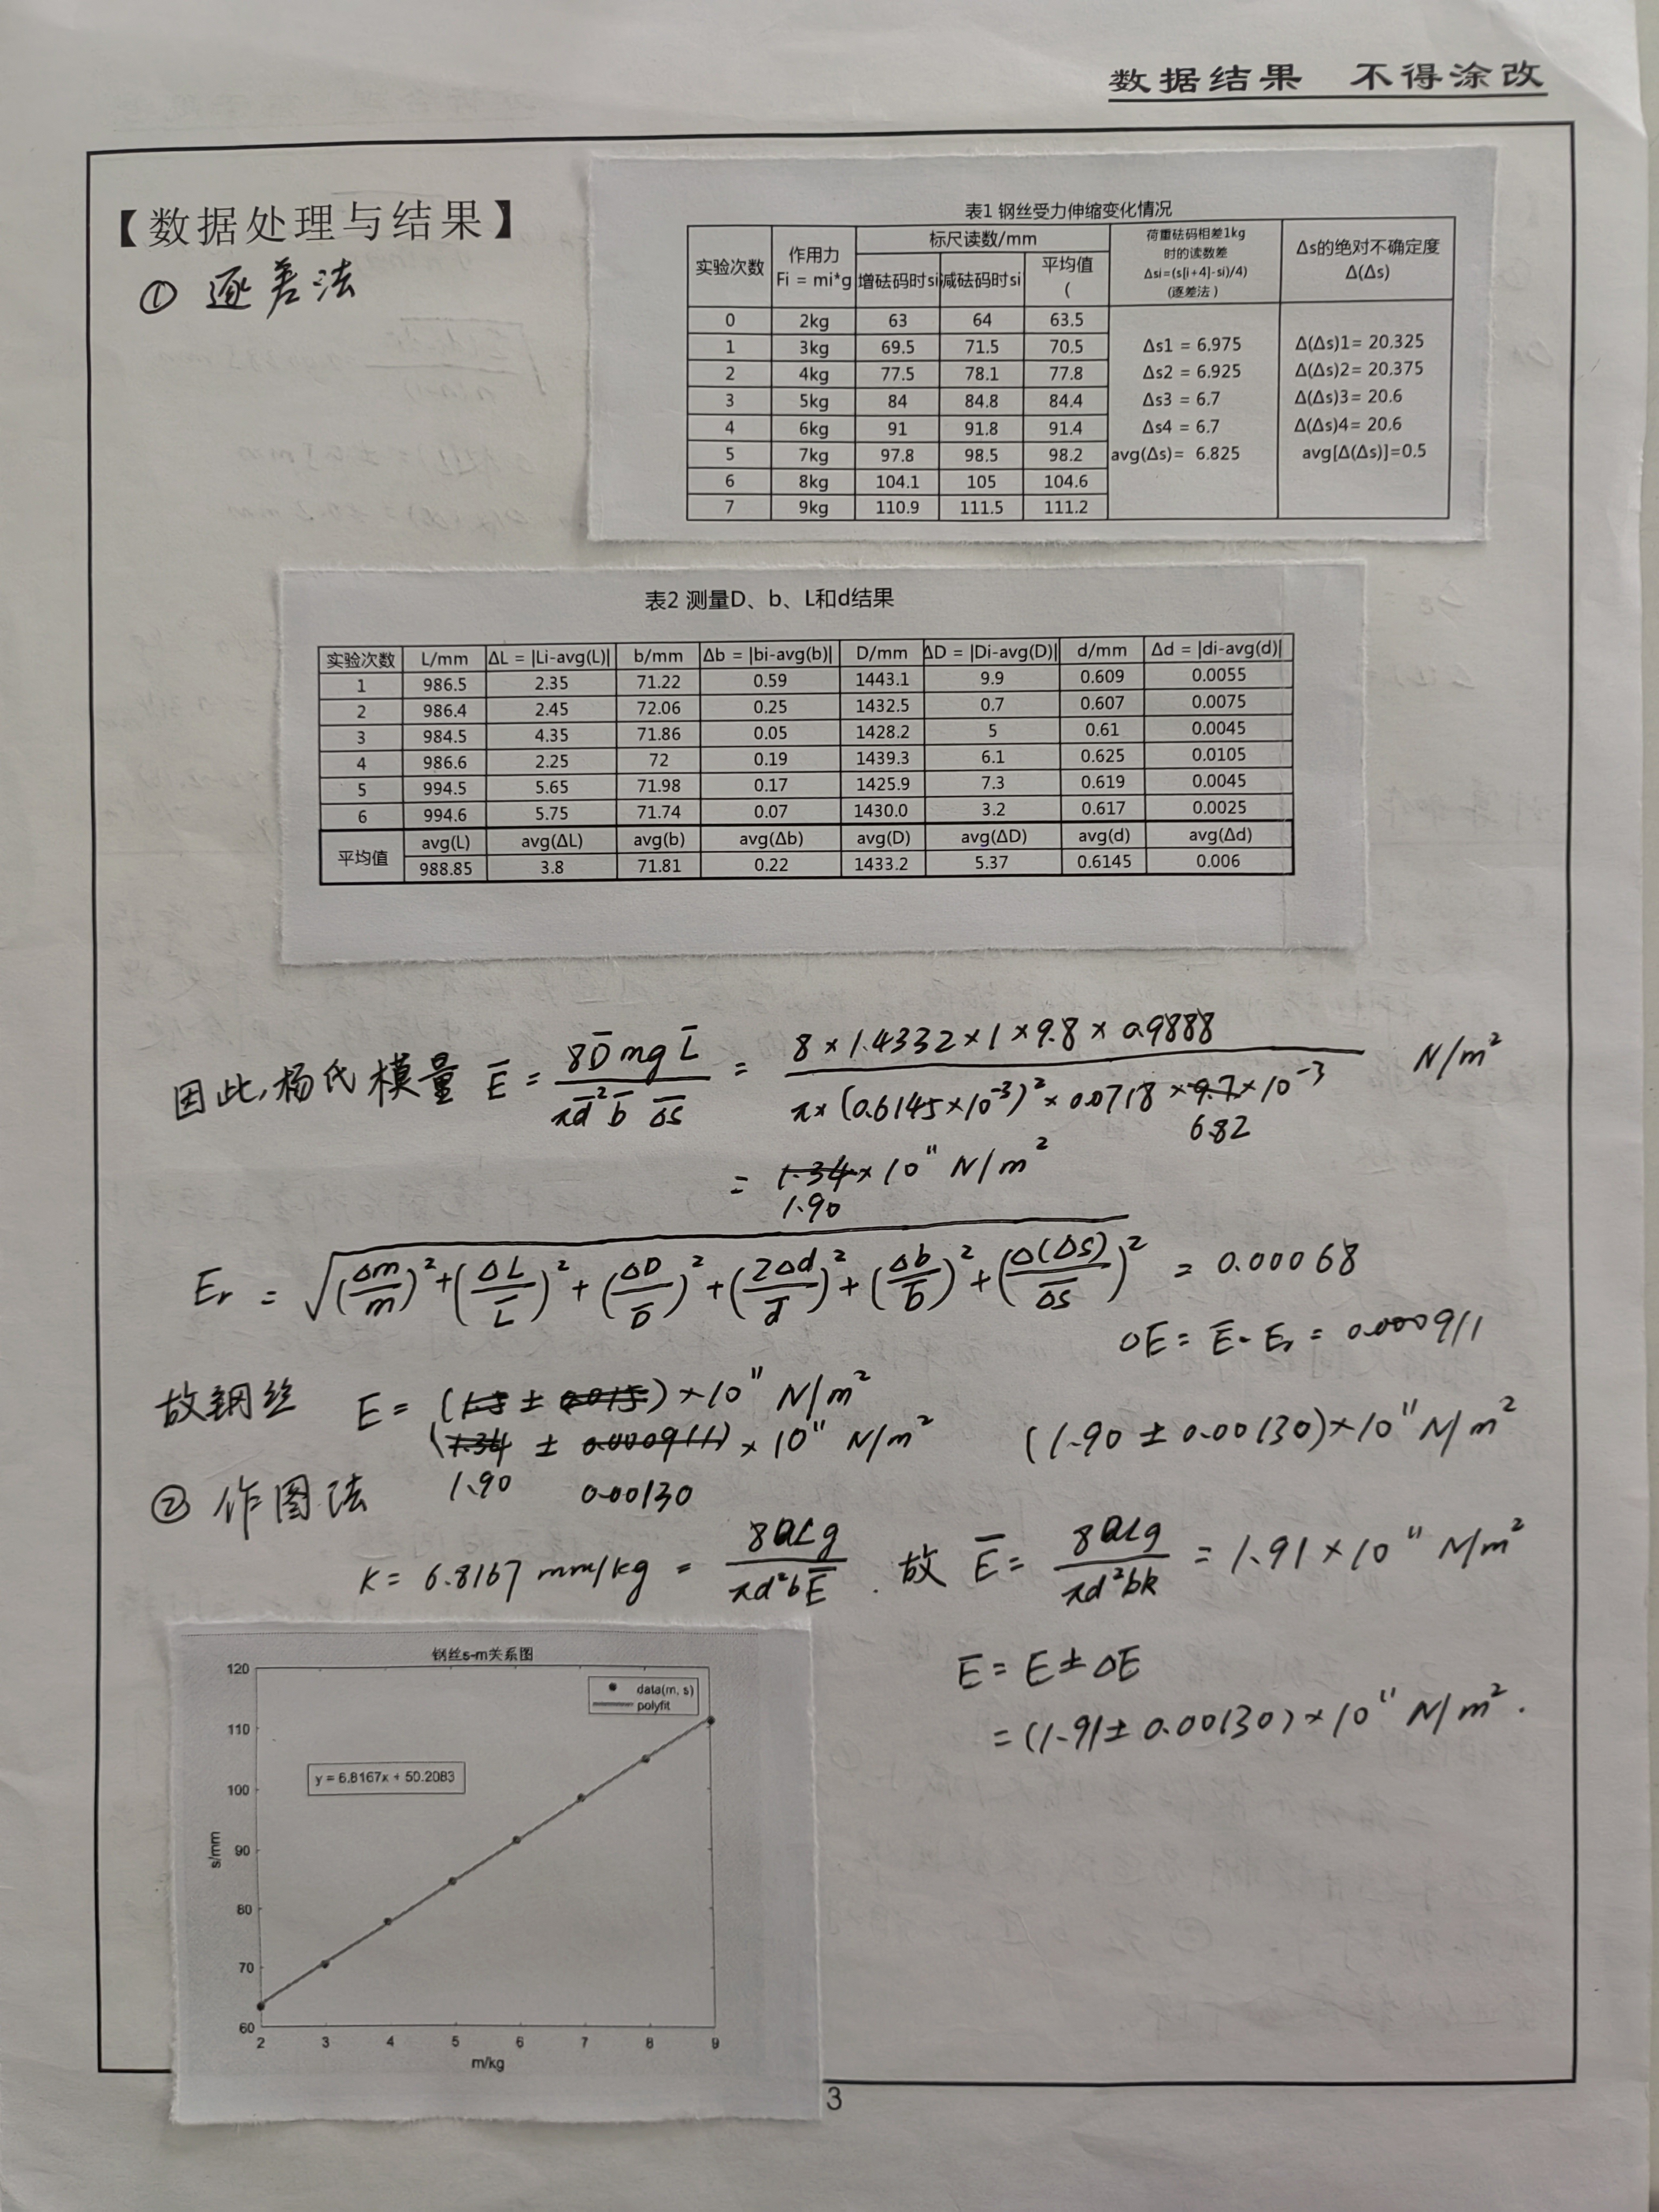 数据结果 不得涂改
【数据处理与结果】
① 逐差法
表1 钢丝受力伸缩变化情况
实验次数 作用力 Fi = mi*g 标尺读数/mm 荷重砝码相差1kg 时的读数差 Δsi=(s[i+4]-si)/4) (逐差法) Δs的绝对不确定度 Δ(Δs)
增砝码时si 减砝码时si 平均值 (
0 2kg 63 64 63.5
1 3kg 69.5 71.5 70.5 Δs1 = 6.975 Δ(Δs)1= 20.325
2 4kg 77.5 78.1 77.8 Δs2 = 6.925 Δ(Δs)2= 20.375
3 5kg 84 84.8 84.4 Δs3 = 6.7 Δ(Δs)3= 20.6
4 6kg 91 91.8 91.4 Δs4 = 6.7 Δ(Δs)4= 20.6
5 7kg 97.8 98.5 98.2 avg(Δs)= 6.825 avg[Δ(Δs)]=0.5
6 8kg 104.1 105 104.6
7 9kg 110.9 111.5 111.2
表2 测量D、b、L和d结果
实验次数 L/mm ΔL = |Li-avg(L)| b/mm Δb = |bi-avg(b)| D/mm ΔD = |Di-avg(D)| d/mm Δd = |di-avg(d)|
1 986.5 2.35 71.22 0.59 1443.1 9.9 0.609 0.0055
2 986.4 2.45 72.06 0.25 1432.5 0.7 0.607 0.0075
3 984.5 4.35 71.86 0.05 1428.2 5 0.61 0.0045
4 986.6 2.25 72 0.19 1439.3 6.1 0.625 0.0105
5 994.5 5.65 71.98 0.17 1425.9 7.3 0.619 0.0045
6 994.6 5.75 71.74 0.07 1430.0 3.2 0.617 0.0025
平均值 avg(L) avg(ΔL) avg(b) avg(Δb) avg(D) avg(ΔD) avg(d) avg(Δd)
988.85 3.8 71.81 0.22 1433.2 5.37 0.6145 0.006
因此,杨氏模量 E̅ = 8D̅mgL̅ / πd̅²b̅ Δ̅s̅ = 8×1.4332×1×9.8×0.9888 / π×(0.6145×10⁻³)²×0.0718×9.7×10⁻³ N/m²
6.82
= 1.34×10¹¹ N/m²
1.90
Er = √(Δm/m)²+(ΔL/L̅)²+(ΔD/D̅)²+(2Δd/d̅)²+(Δb/b̅)²+(Δ(Δs)/Δ̅s̅)² = 0.00068
ΔE = E̅·Er = 0.000911
故钢丝 E = (1.3 ± 0.015)×10¹¹ N/m²
(1.34 ± 0.000911)×10¹¹ N/m² (1.90±0.00130)×10¹¹ N/m²
1.90 0.00130
② 作图法
K = 6.8167 mm/kg = 8DLg / πd²bE̅ . 故 E̅ = 8DLg / πd²bk = 1.91×10¹¹ N/m²
E̅ = E ± ΔE
= (1.91±0.00130)×10¹¹ N/m².
钢丝s-m关系图
data(m, s)
polyfit
y = 6.8167x + 50.2083
120
110
100
90
80
70
60
s/mm
2 3 4 5 6 7 8 9
m/kg
3